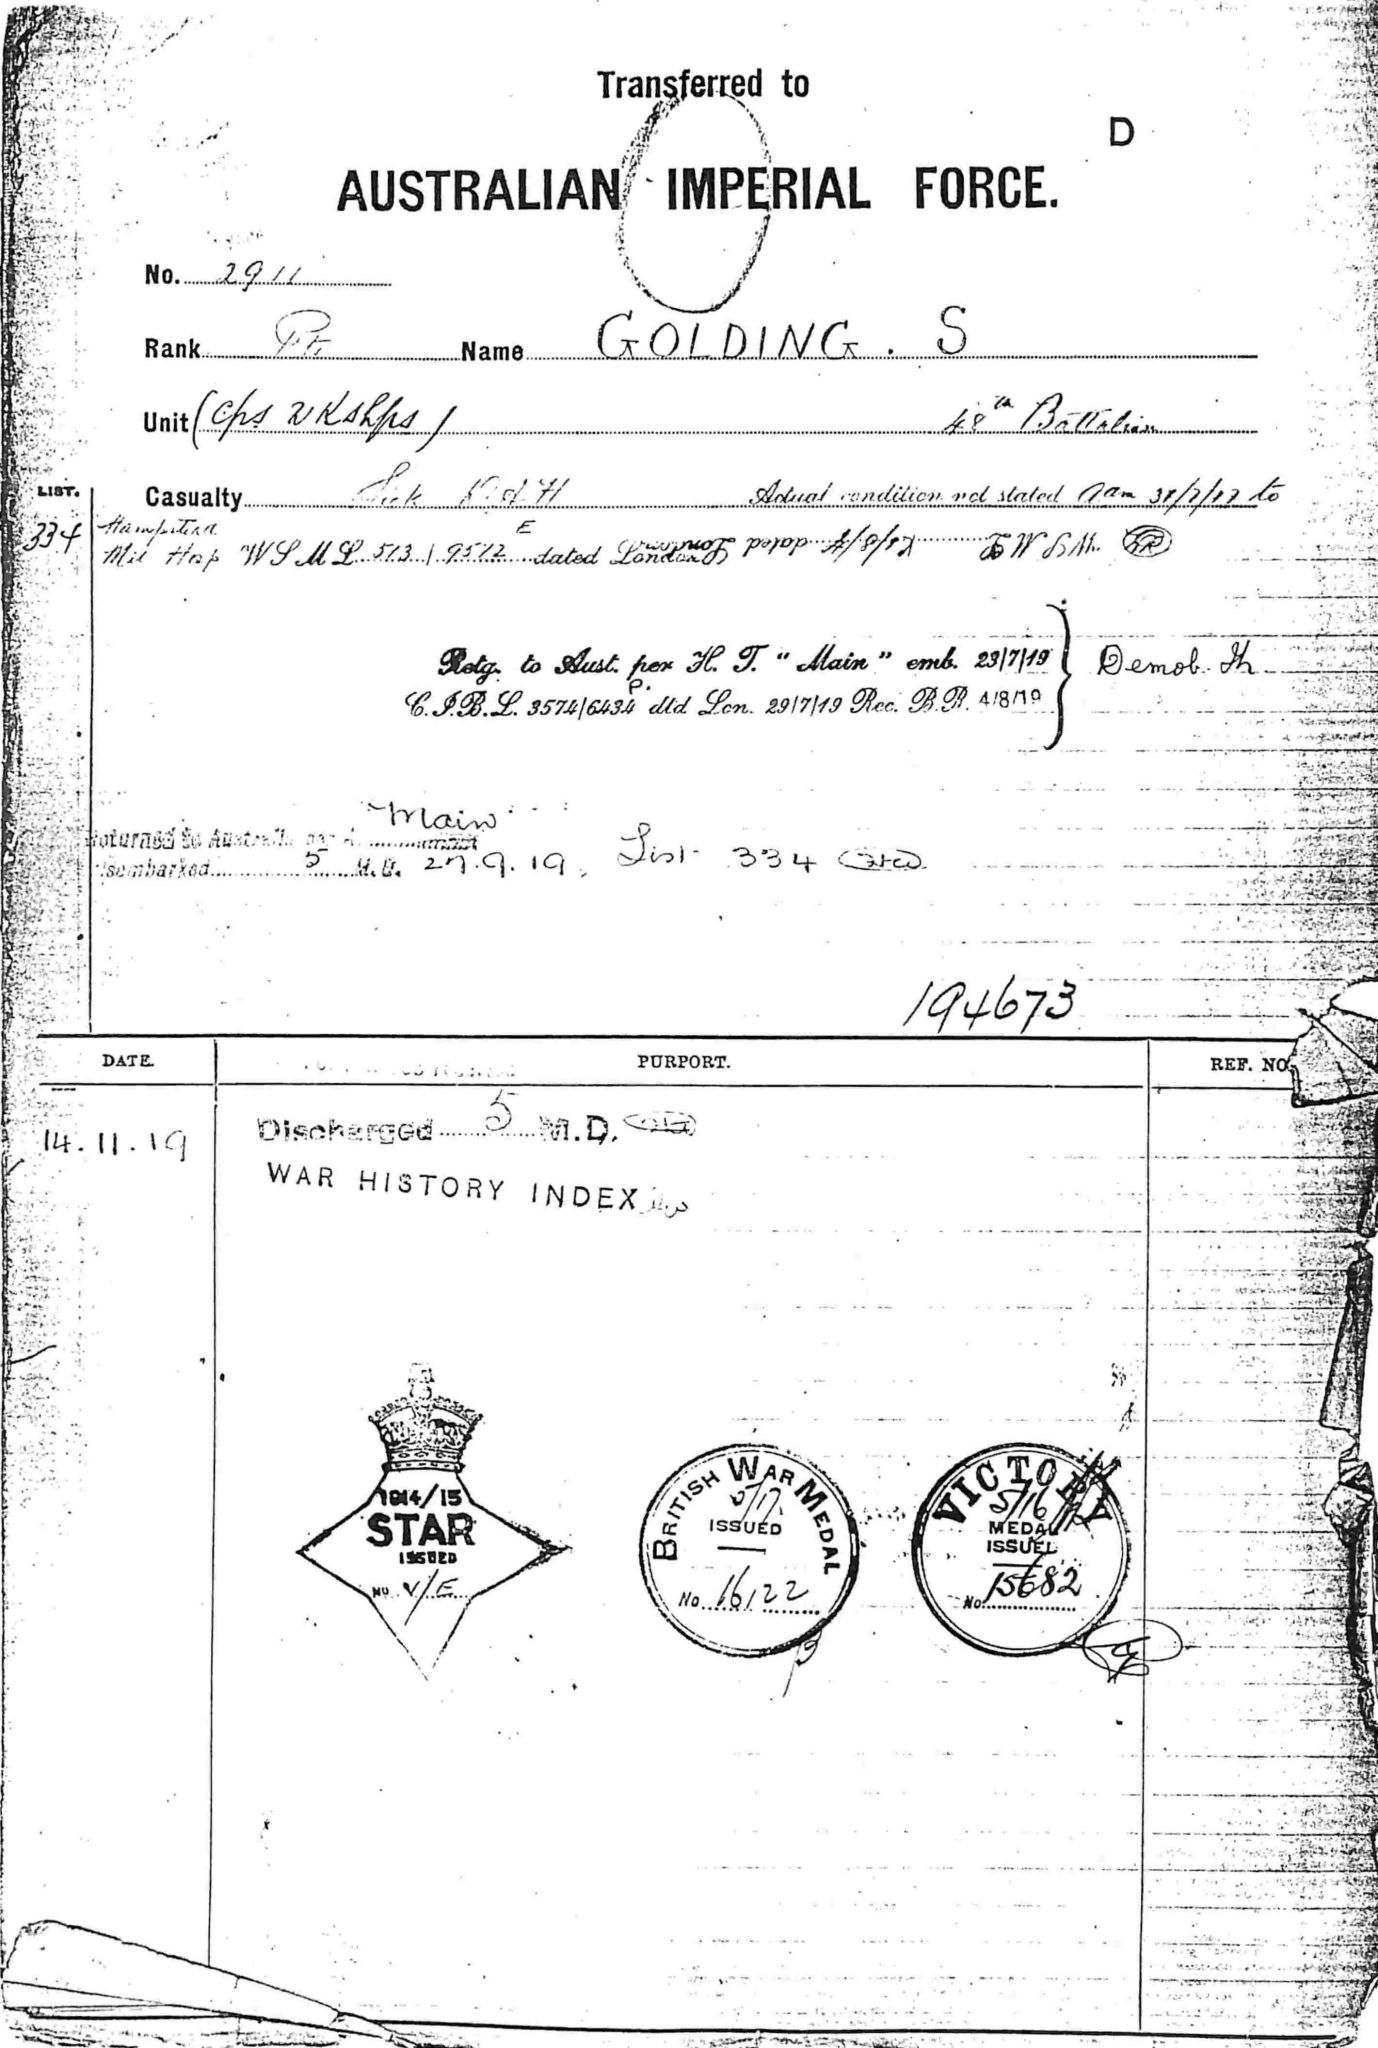 Transferred to
D
AUSTRALIAN IMPERIAL FORCE.
No. 2911
Rank Pte Name GOLDING. S
Unit (Cps Wkshps) 48th Battalion
LIST. Casualty Sick Actual condition not stated to
334 Mil Hosp W S M L 513/9512 E dated London dated
Retg. to Aust. per H. T. "Main" emb. 23/7/19
Demob.
C.I.B.L. 3574/6434 P. dtd Lon. 29/7/19 Rec. B.R. 4/8/19
Main
Returned to Australia per
Disembarked 5 M.D. 27.9.19, List 334
194673
DATE. PURPORT. REF. NO.
14.11.19 Discharged 5 M.D.
WAR HISTORY INDEX
1914/15
STAR
ISSUED
No V/E
BRITISH WAR MEDAL
ISSUED
No 16122
VICTORY
5/16
MEDAL
ISSUED
No. 15682